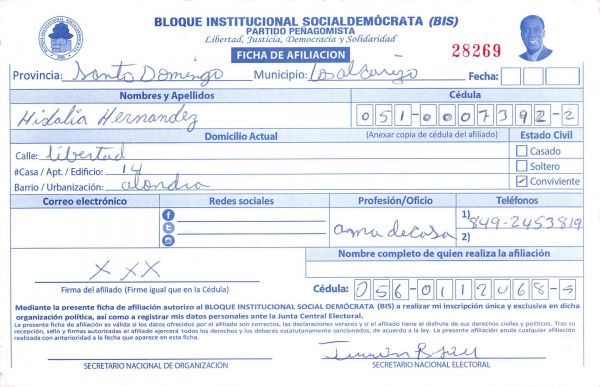 BLOQUE INSTITUCIONAL SOCIALDEMÓCRATA (BIS)
PARTIDO PEÑAGOMISTA
Libertad, Justicia, Democracia y Solidaridad
FICHA DE AFILIACION
28269
Provincia: Santo Domingo Municipio: Los alcarrizo Fecha:
Nombres y Apellidos Cédula
Hidalia Hernandez 051-0007392-2
Domicilio Actual (Anexar copia de cédula del afiliado) Estado Civil
Calle: libertad Casado
#Casa / Apt. / Edificio: 14 Soltero
Barrio / Urbanización: alondra Conviviente
Correo electrónico Redes sociales Profesión/Oficio Teléfonos
ama de casa 1) 849-2453819
2)
Nombre completo de quien realiza la afiliación
X X X
Firma del afiliado (Firme igual que en la Cédula) Cédula: 056-0112068-5
Mediante la presente ficha de afiliación autorizo al BLOQUE INSTITUCIONAL SOCIAL DEMÓCRATA (BIS) a realizar mi inscripción única y exclusiva en dicha
organización política, así como a registrar mis datos personales ante la Junta Central Electoral.
La presente ficha de afiliación es válida si los datos ofrecidos por el afiliado son correctos, las declaraciones veraces y si el afiliado tiene el disfrute de sus derechos civiles y políticos. Tras su
recepción, sello y firmas autorizadas el afiliado ejercerá todos los derechos y los deberes estatutariamente sancionados, de acuerdo a la ley. La presente afiliación anula cualquier afiliación
realizada con anterioridad a la fecha que aparece en esta ficha.
SECRETARIO NACIONAL DE ORGANIZACIÓN SECRETARIO NACIONAL ELECTORAL